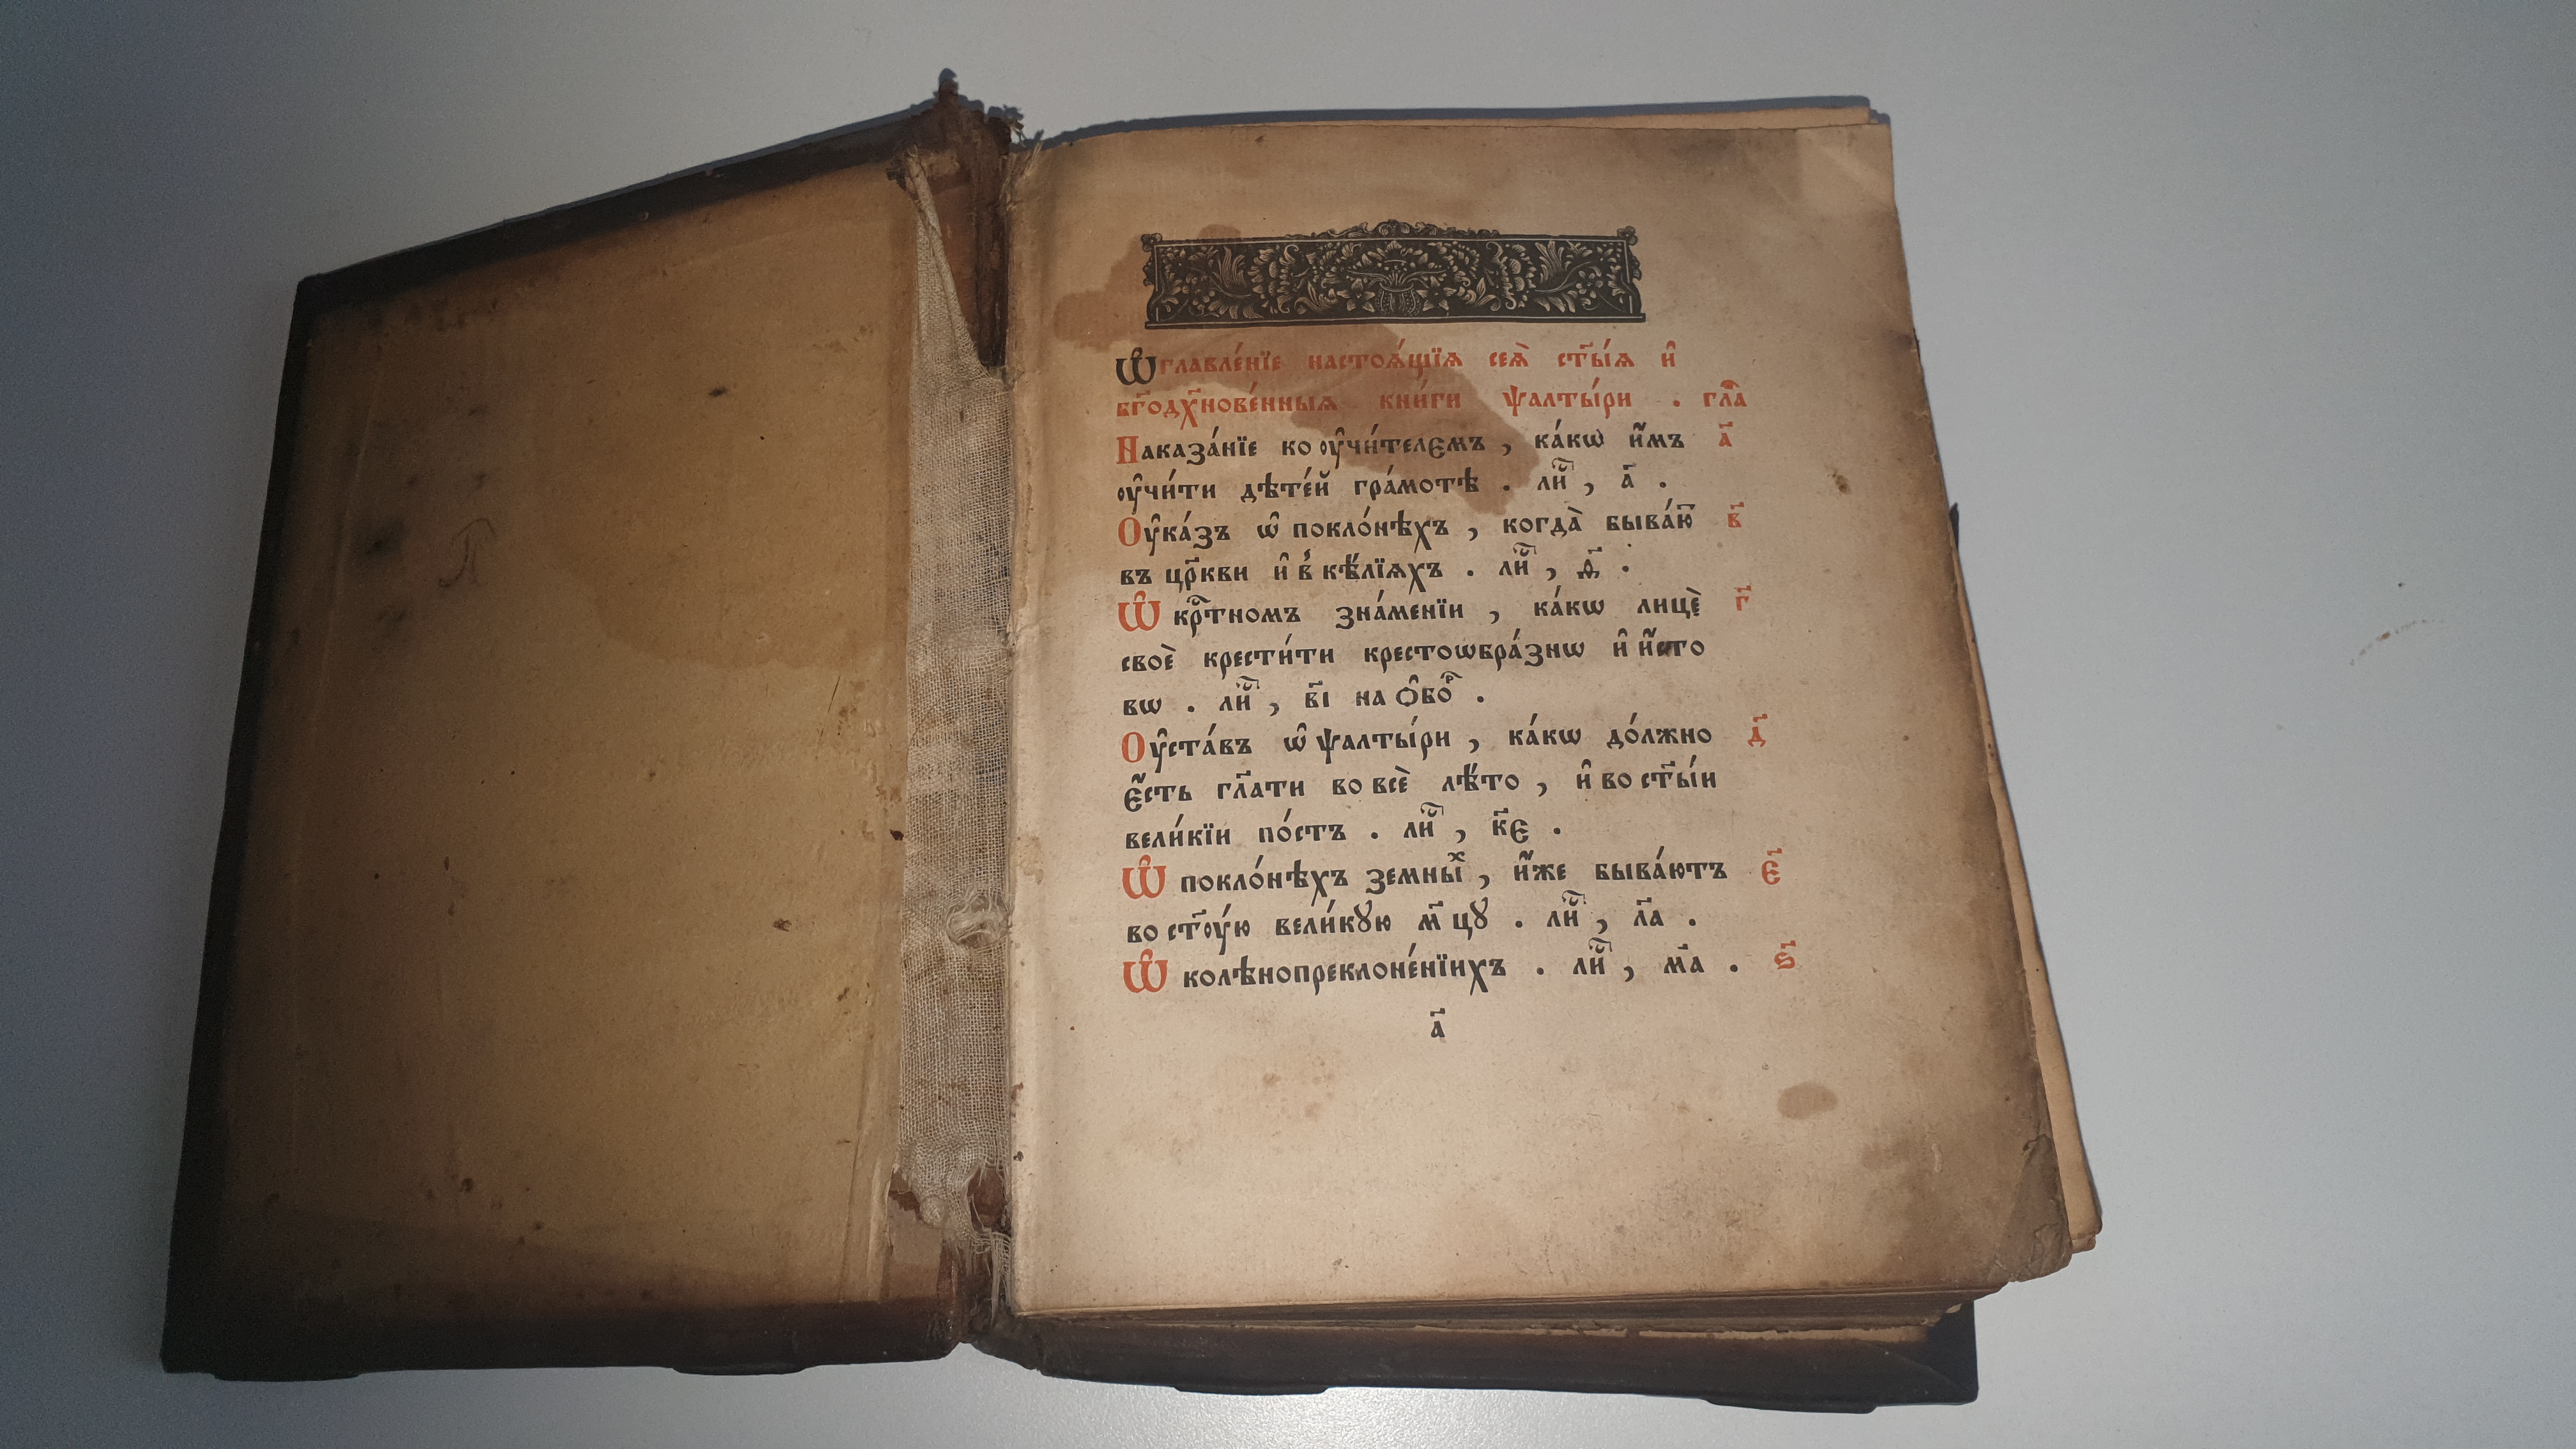 Ѡ҆главле́нїе настоѧ́щїѧ сеѧ̀ ст҃ы́ѧ и҆
бг҃одх҃нове́нныѧ книги ѱалты́ри . гла̑
Наказа́нїе ко ᲂу҆чи́телємъ , ка́кѡ и҆̀мъ а҃
ᲂу҆чи́ти дѣте́й гра́мотѣ . лиⷭ҇ , а҃ .
Оу҆ка́зъ ѡ҆ покло́нѣхъ , когда̀ быва́ю︮ в҃
въ цр҃кви и҆ в̾ кѣ́лїѧхъ . лиⷭ҇ , д҃ .
Ѡ҆ крⷭ҇тномъ зна́менїи , ка́кѡ лицѐ г҃
своѐ крести́ти крестоѡбра́знѡ и҆ и҆́сто
вѡ . лиⷭ҇ , в҃і на ѻ҆боⷬ҇ .
Оу҆ста́въ ѡ҆ ѱалты́ри , ка́кѡ до́лжно д҃
є҆́сть гл҃ати во всѐ лѣ́то , и҆ во ст҃ы́и
вели́кїи по́стъ . лиⷭ҇ , к҃є .
Ѡ҆ покло́нѣхъ земныⷯ , и҆́же быва́ютъ є҃
во ст҃ᲂу́ю вели́кꙋю мⷭ҇цꙋ . лиⷭ҇ , л҃а .
Ѡ҆ колѣнопреклоне́нїихъ . лиⷭ҇ , м҃а . ѕ҃
а҃